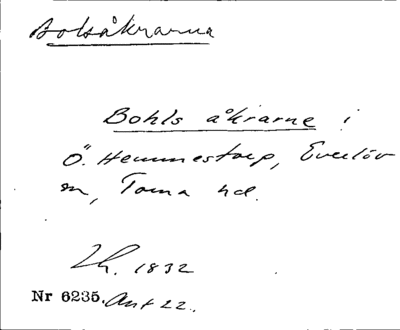 Bolsåkrarna
Bohls åkrarne i
Ö. Hemmestorp, Everlöv
sn, Torna hd.
Lh. 1832
Nr 6235. Ant 22.